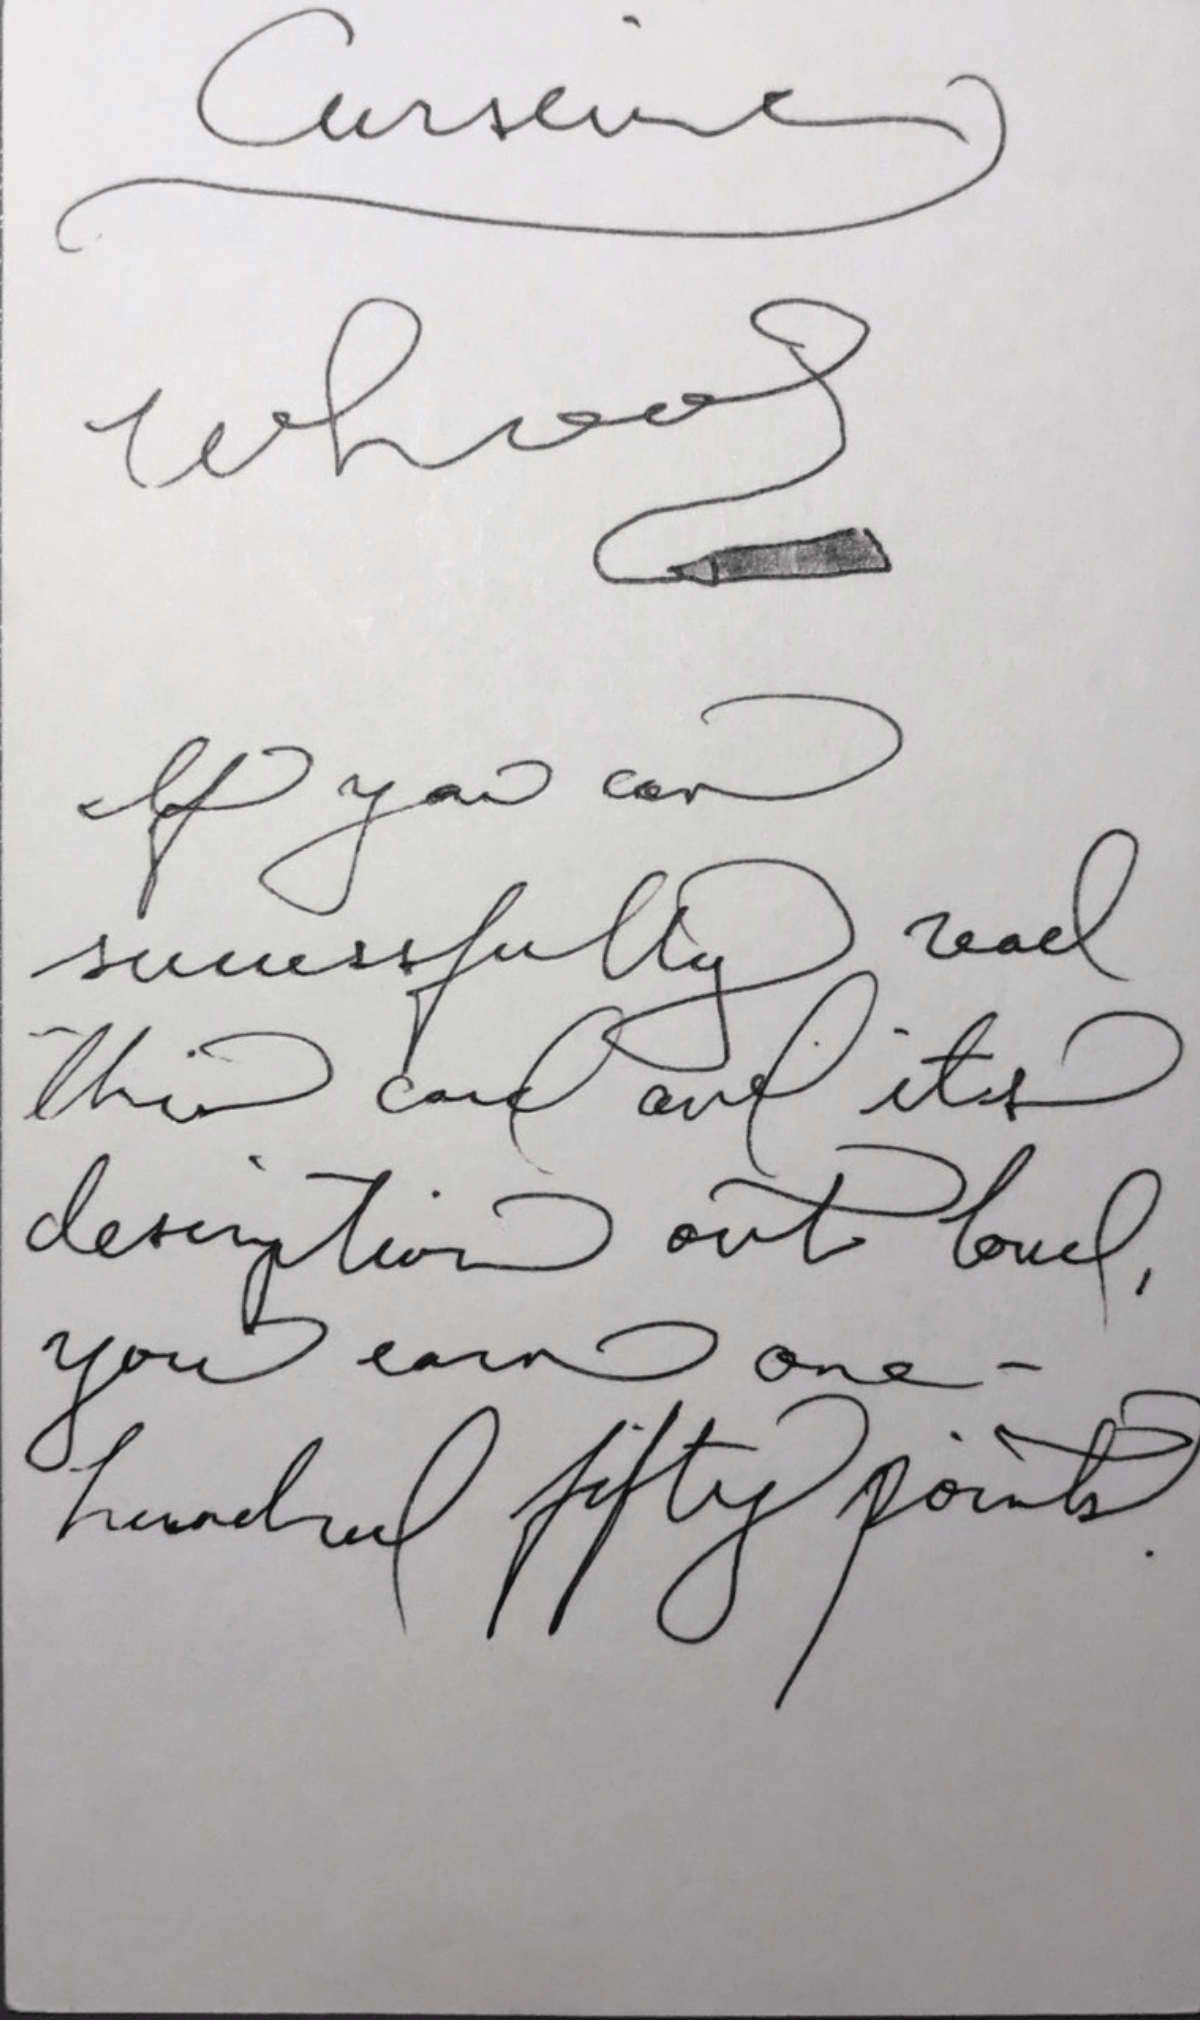 Cursive
Whoos
If you can
successfully read
this card and its
description out loud,
you earn one-
hundred fifty points.